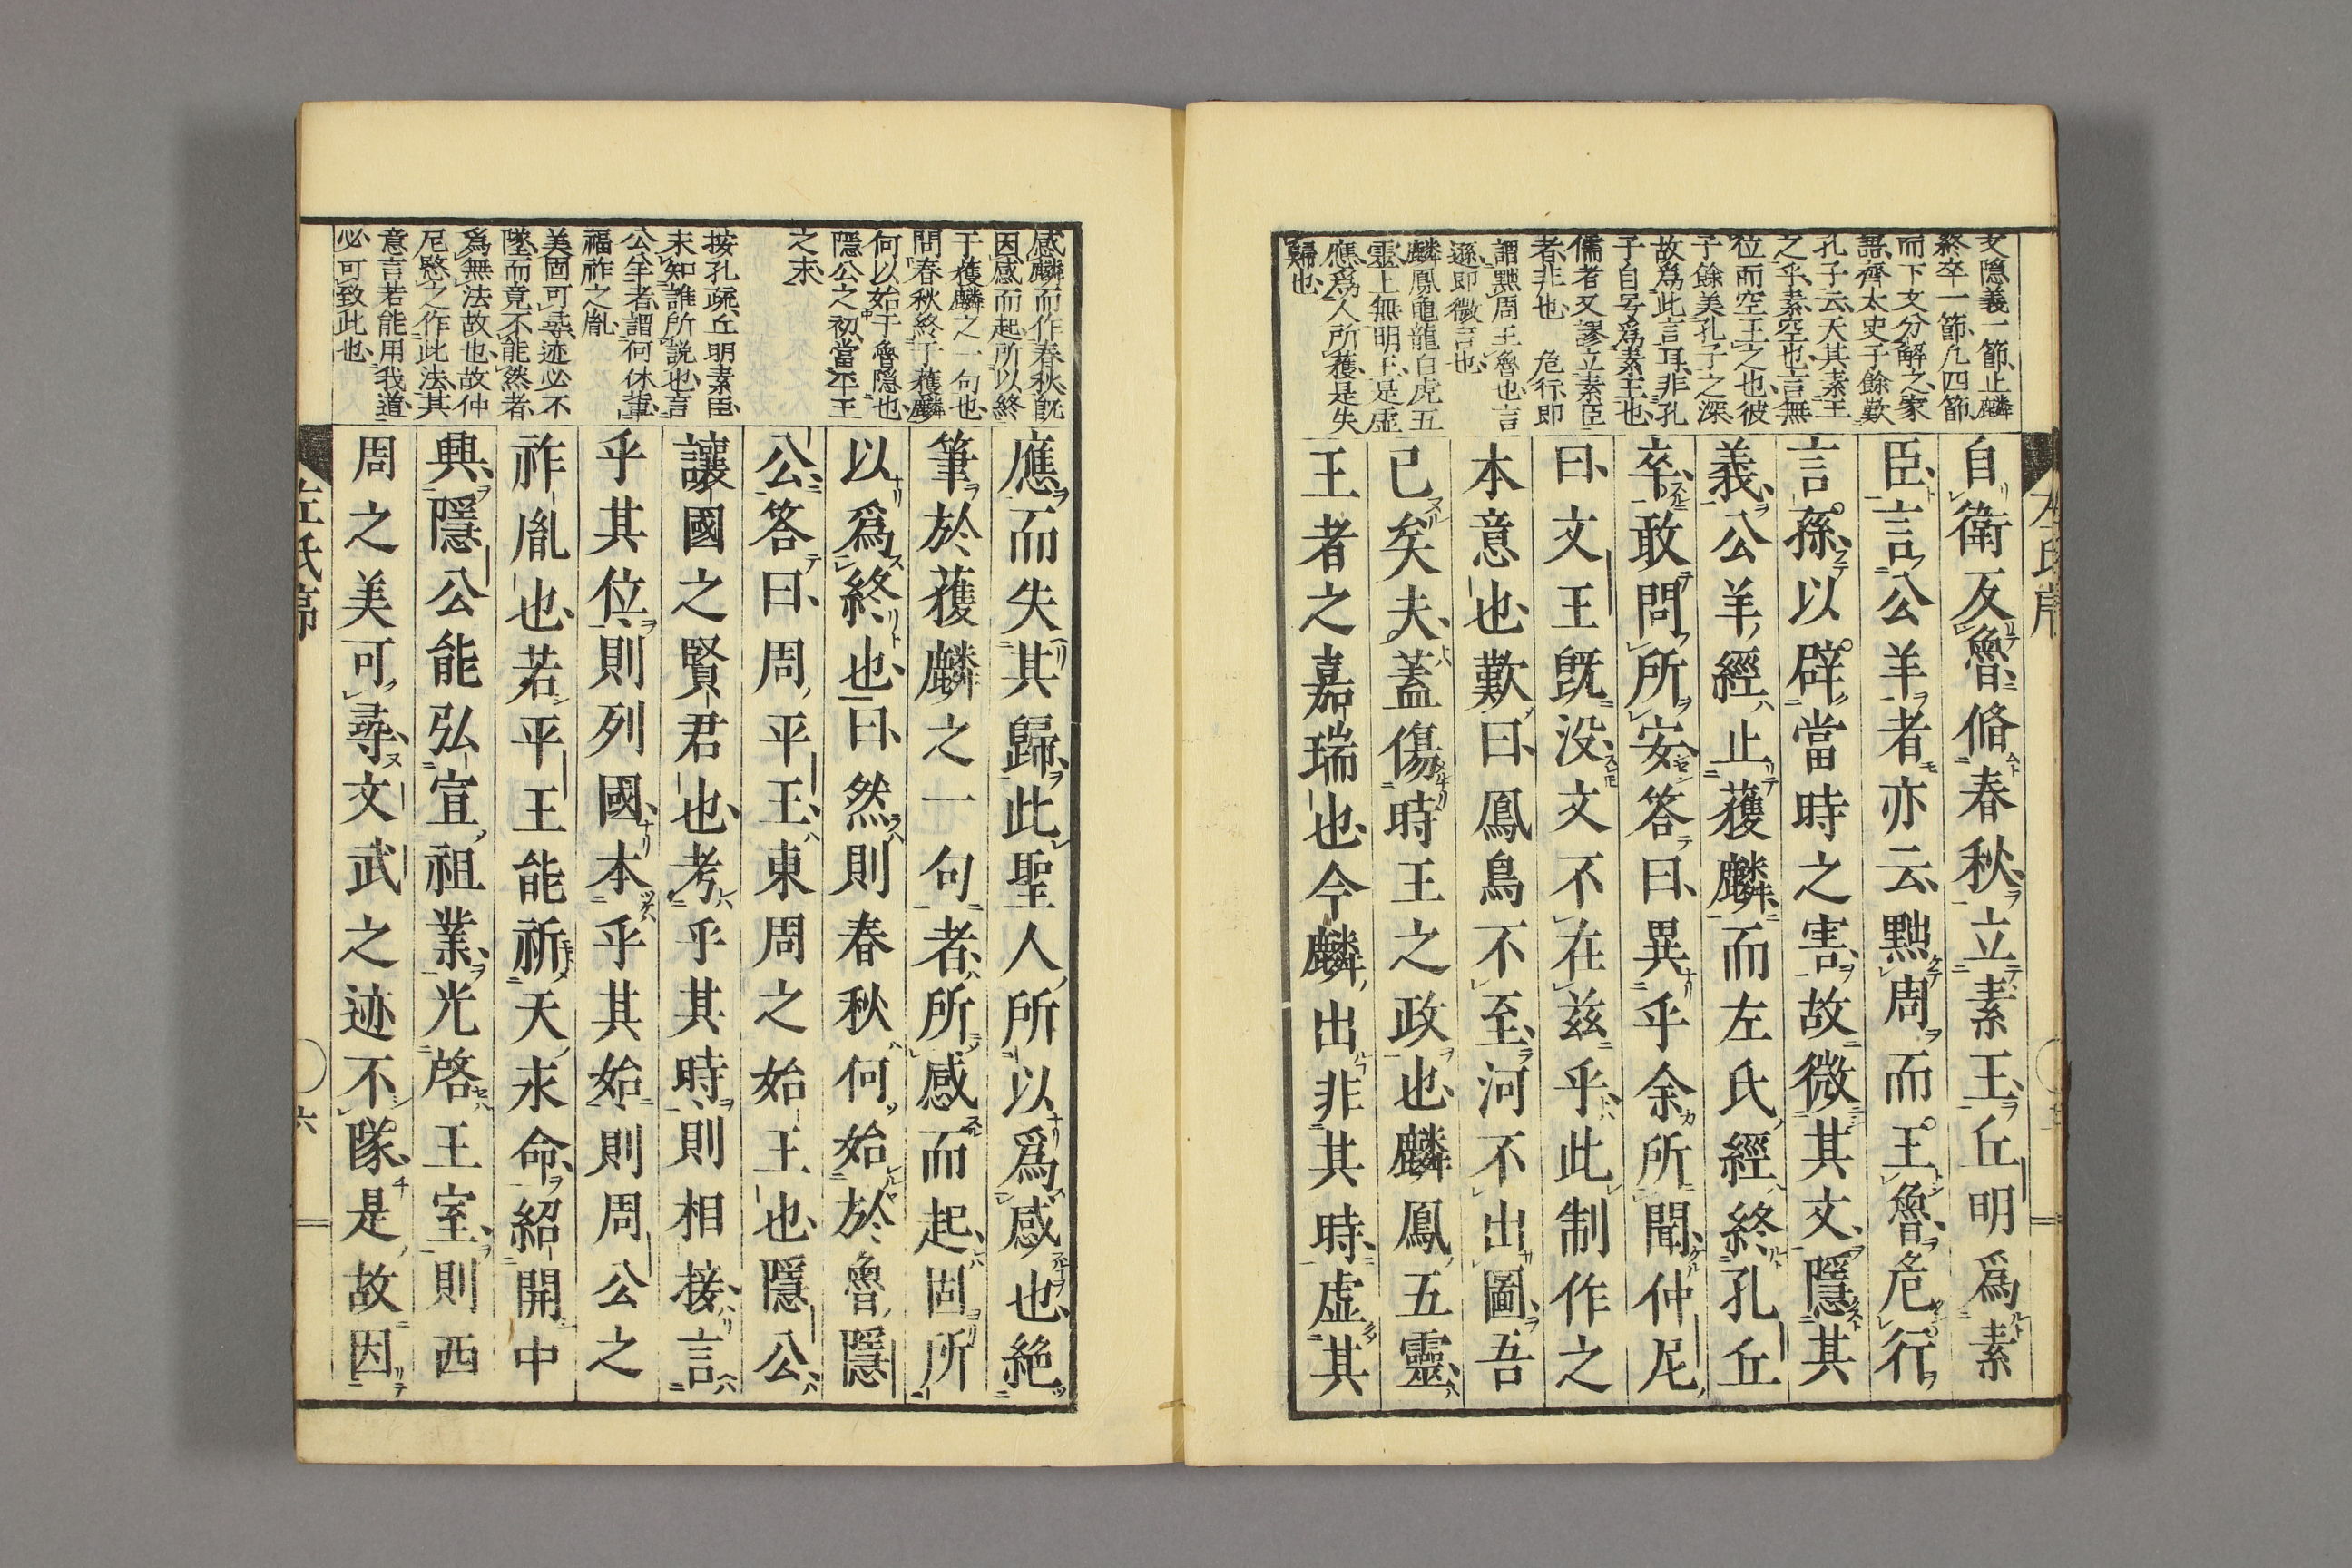 文隱義一節、止麟
終卒一節、凡四節、
而下文分解之、家
語、齊太史子餘歎
孔子云、天其素王
之乎、素空也、言無
位而空王之也、彼
子餘美孔子之深、
故爲此言耳、非孔
子自号爲素王也、
儒者又謬立素臣
者、非也 危行、即
謂黜周王魯也、言
遜、即微言也、
麟鳳龜龍白虎五
靈、上無明王、是虛
應、爲人所獲、是失
歸也、
自衛反魯、脩春秋、立素王、丘明爲素
臣、言公羊者亦云、黜周而王魯、危行
言孫、以辟當時之害、故微其文、隱其
義、公羊經止獲麟、而左氏經終孔丘
卒、敢問所安、答曰、異乎余所聞、仲尼
曰、文王既没、文不在茲乎、此制作之
本意也、歎曰、鳳鳥不至、河不出圖、吾
已矣夫、蓋傷時王之政也、麟鳳五靈、
王者之嘉瑞也、今麟出非其時、虛其
左氏序
感麟而作春秋、既
因感而起、所以終
于獲麟之一句也、
問春秋終于獲麟、
何以始于魯隱也、
隱公之初、當平王
之末、
按孔疏、丘明素臣、
未知誰所説也、言
公羊者、謂何休輩、
福祚之胤、
美固可尋、迹必不
墜、而竟不能然者、
爲無法故也、故仲
尼愍之作此法、其
意言若能用我道、
必可致此也、
應而失其歸、此聖人所以爲感也、絶
筆於獲麟之一句者、所感而起、固所
以爲終也、曰、然則春秋何始於魯隱
公、答曰、周平王、東周之始王也、隱公、
讓國之賢君也、考乎其時、則相接、言
乎其位、則列國、本乎其始、則周公之
祚胤也、若平王能祈天永命、紹開中
興、隱公能弘宣祖業、光啓王室、則西
周之美可尋、文武之迹不隊、是故因
左氏序
六